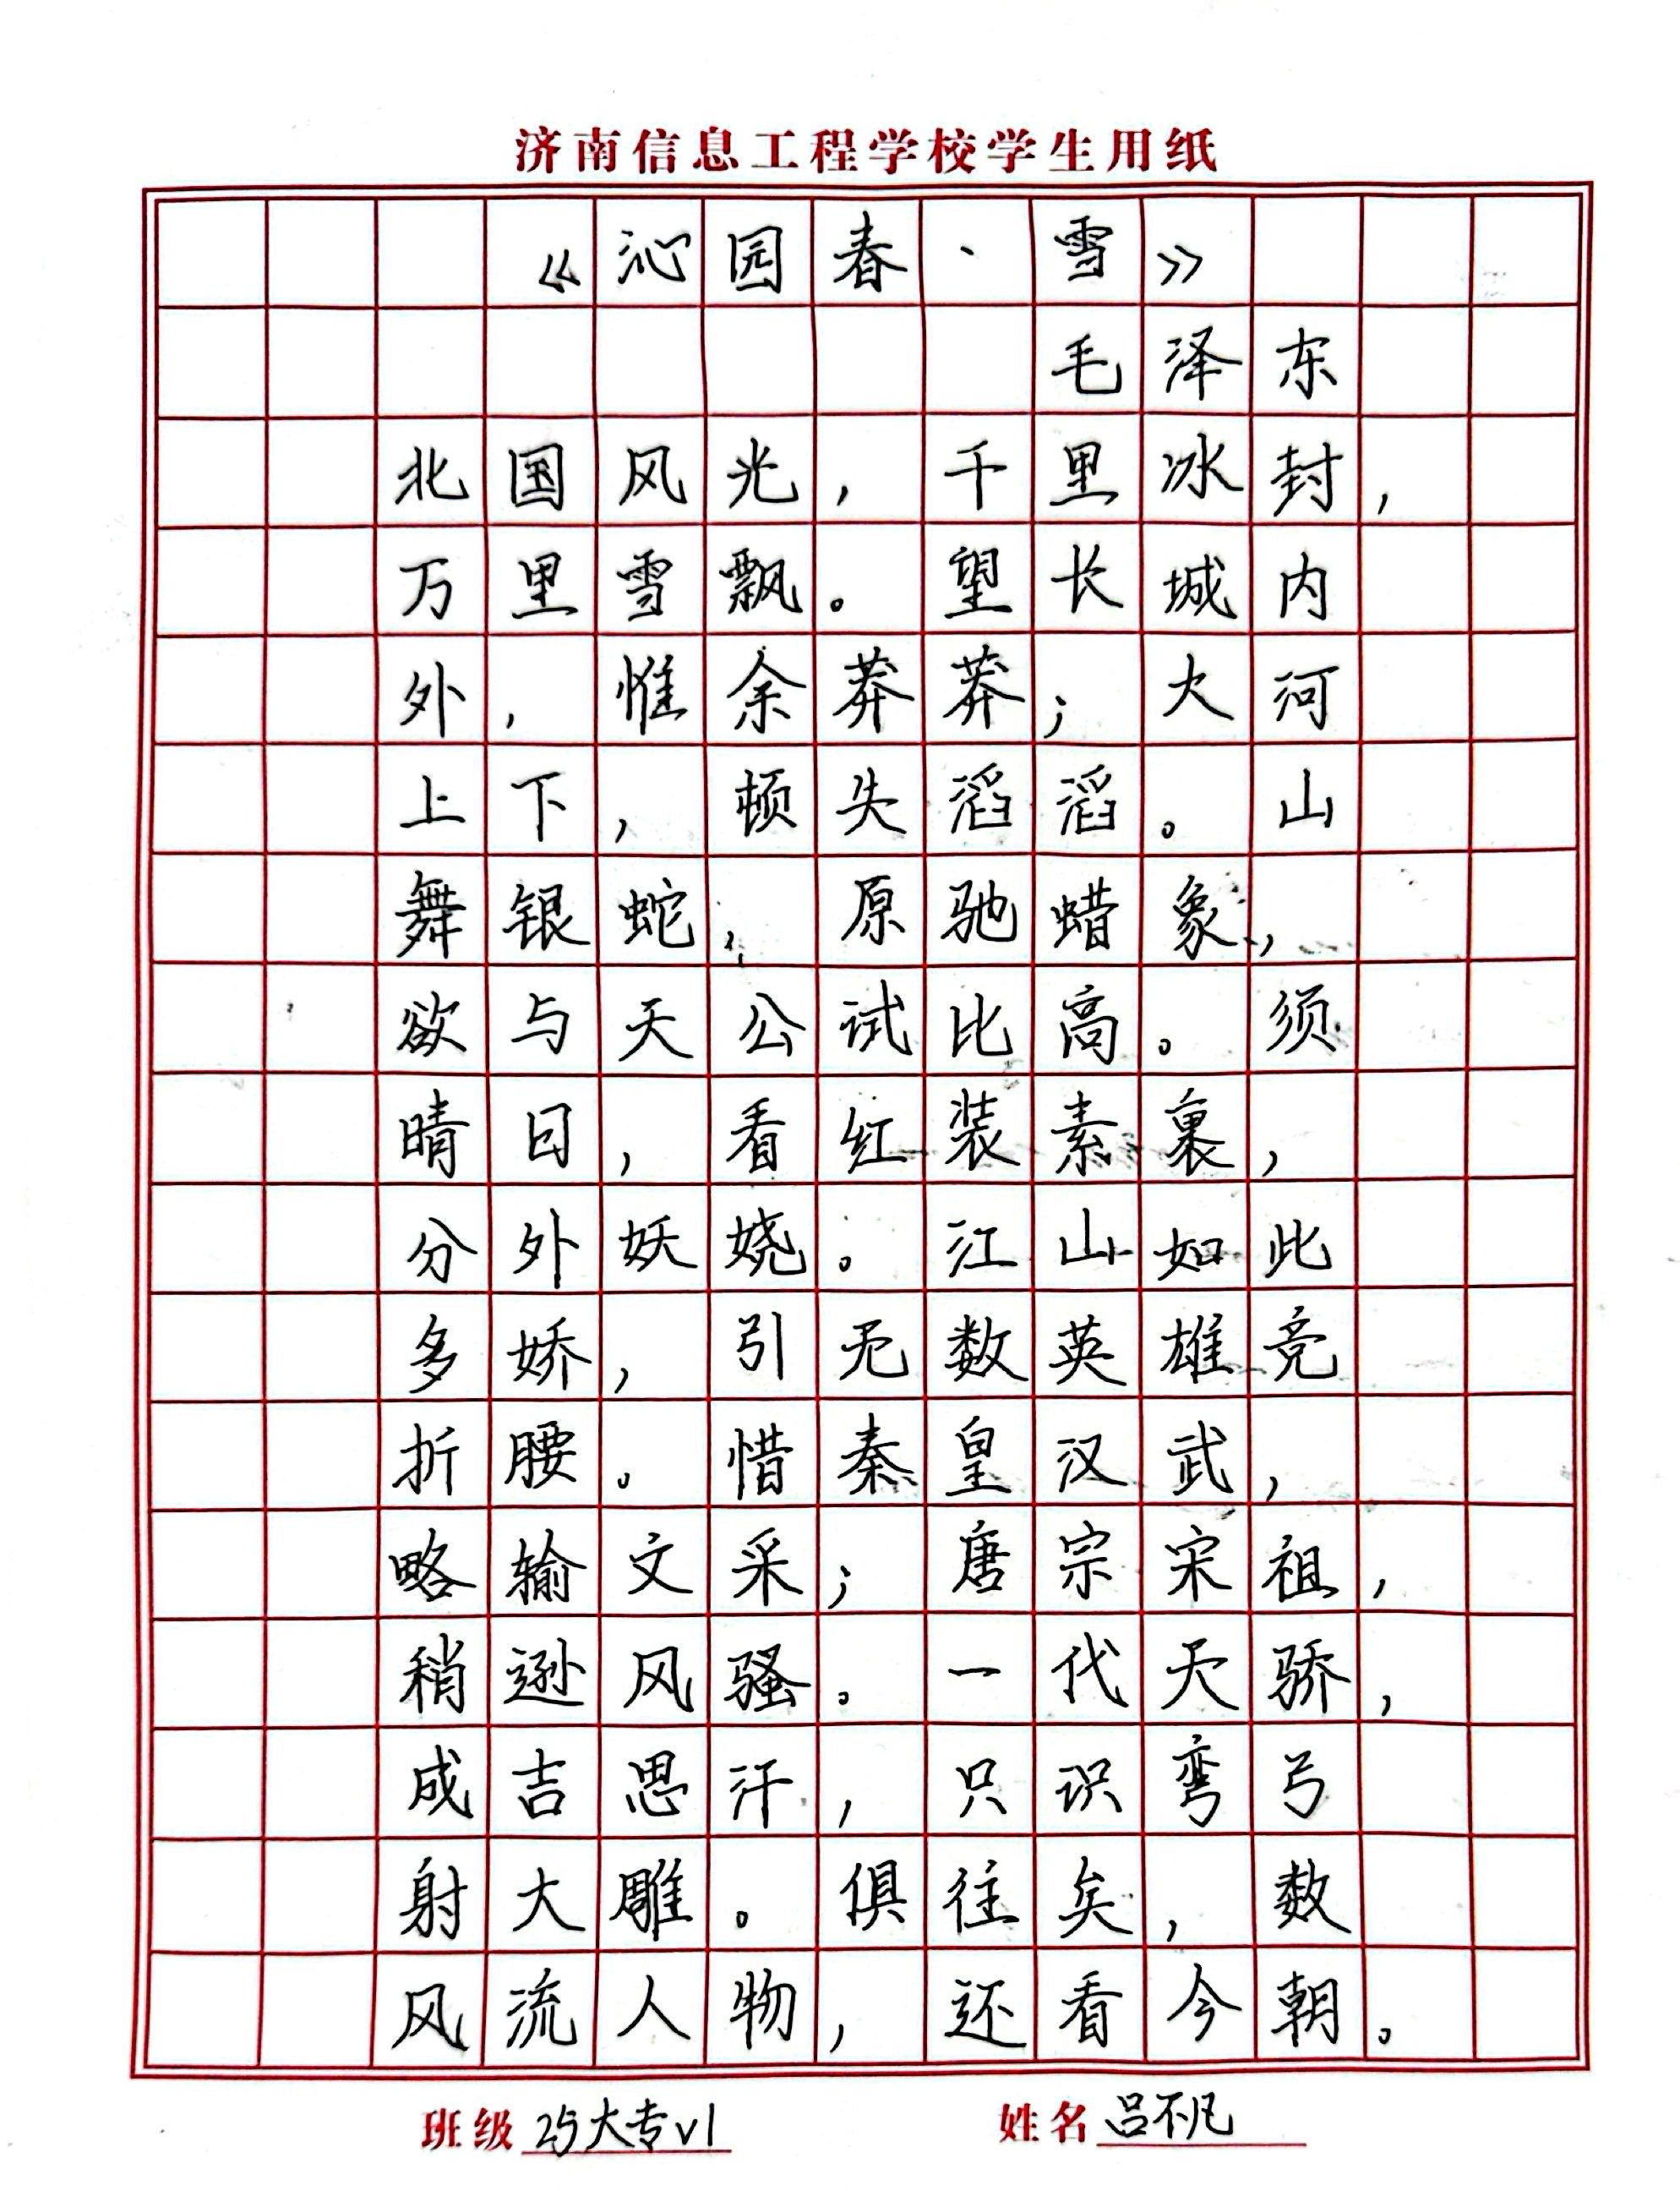 济南信息工程学校学生用纸
《沁园春、雪》
毛泽东
北国风光，千里冰封，
万里雪飘。望长城内
外，惟余莽莽；大河
上下，顿失滔滔。山
舞银蛇，原驰蜡象，
欲与天公试比高。须
晴日，看红装素裹，
分外妖娆。江山如此
多娇，引无数英雄竞
折腰。惜秦皇汉武，
略输文采；唐宗宋祖，
稍逊风骚。一代天骄，
成吉思汗，只识弯弓
射大雕。俱往矣，数
风流人物，还看今朝。
班级 25大专V1 姓名 吕不凡